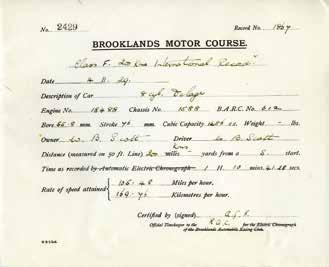 No. 2429 Record No. 1867
BROOKLANDS MOTOR COURSE.
Class F. 200 Kms International Record.
Date 4. 11. 29.
Description of Car 8 cyl. Delage
Engine No. 18488 Chassis No. 1588 B.A.R.C. No. 602
Bore 55.8 mm. Stroke 76 mm. Cubic Capacity 1486 c.c. Weight - lbs.
Owner W. B. Scott Driver W. B. Scott
Distance (measured on 50 ft. Line) 200 Kms miles - yards from a S. start.
Time as recorded by Automatic Electric Chronograph - 1 H. 10 mins. 41.28 secs.
Rate of speed attained 105.48 Miles per hour.
169.76 Kilometres per hour.
Certified by (signed)
Official Timekeeper to the R.A.C. for the Electric Chronograph
of the Brooklands Automobile Racing Club.